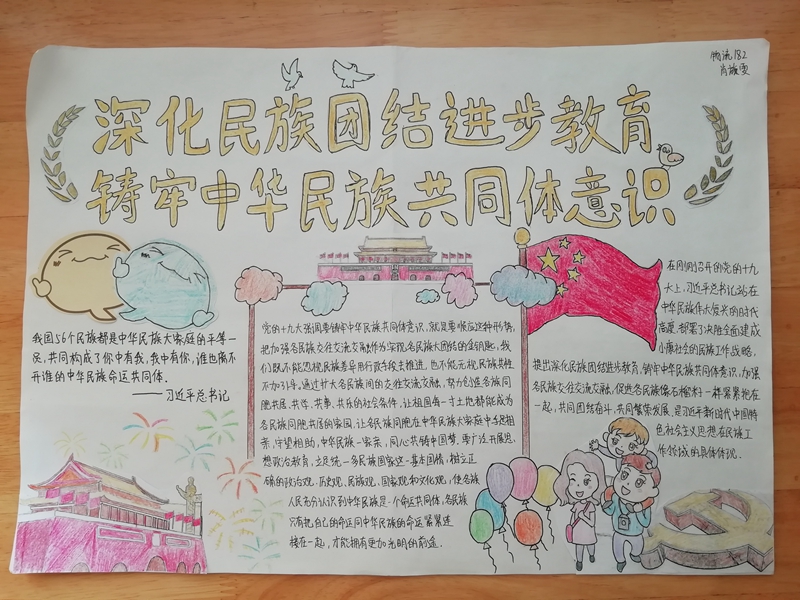 物流182
肖
深化民族团结进步教育
铸牢中华民族共同体意识
我国56个民族都是中华民族大家庭的平等一
员,共同构成了你中有我,我中有你,谁也离不
开谁的中华民族命运共同体.
——习近平总书记
党的十九大强调要铸牢中华民族共同体意识,就是要顺应这种形势,
把加强各民族交往交流交融作为实现各民族大团结的金钥匙,我
们既不能忽视民族差异用行政手段去推进,也不能无视民族共性
不加引导.通过扩大各民族间的交往交流交融,努力创造各族同
胞共居、共学、共事、共乐的社会条件,让祖国每一寸土地都能成为
各民族同胞共居的家园,让各民族同胞在中华民族大家庭中手足相
亲,守望相助,中华民族一家亲,同心共铸中国梦.要广泛开展思
想政治教育,立足统一多民族国家这一基本国情;树立正
确的政治观、历史观、民族观、国家观和文化观,使各族
人民充分认识到中华民族是一个命运共同体,各民族
只有把自己的命运同中华民族的命运紧紧连
接在一起,才能拥有更加光明的前途.
在刚刚召开的党的十九
大上,习近平总书记站在
中华民族伟大复兴的时代
高度,部署了决胜全面建成
小康社会的民族工作战略,
提出深化民族团结进步教育,铸牢中华民族共同体意识,加强
各民族交往交流交融,促进各民族像石榴籽一样紧紧抱在
一起,共同团结奋斗、共同繁荣发展,是习近平新时代中国特
色社会主义思想在民族工
作领域的具体体现.